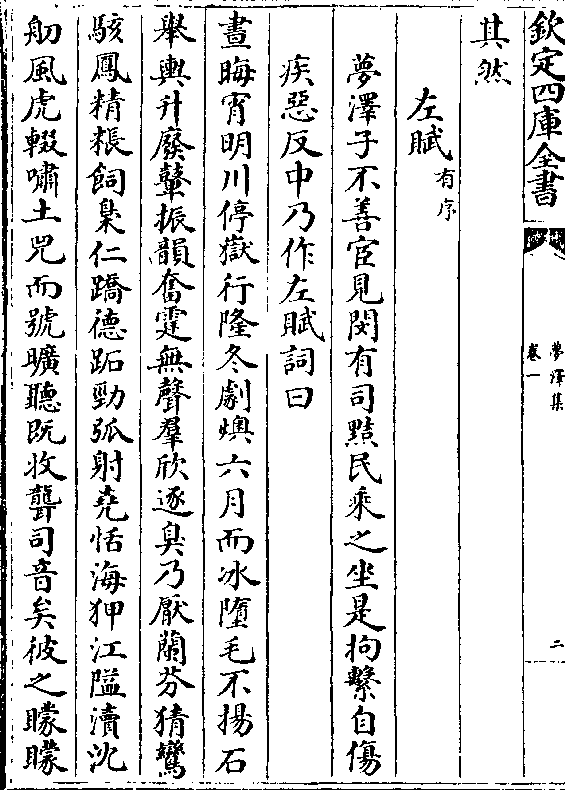 欽定四庫全書
夢澤集
卷一
二
其然
左賦有序
夢澤子不善宦見閔有司黠民乘之坐是拘繫自傷
疾惡反中乃作左賦詞曰
晝晦宵明川停嶽行隆冬劇燠六月而冰墮毛不揚石
舉輿升廢鼙振韻奮霆無聲羣欣逐臭乃厭蘭芬猜鸞
駭鳳精粻飼梟仁蹻德跖勁弧射堯恬海狎江隘瀆沈
舠風虎輟嘯土兕而號曠聽既收聾司音矣彼之矇矇